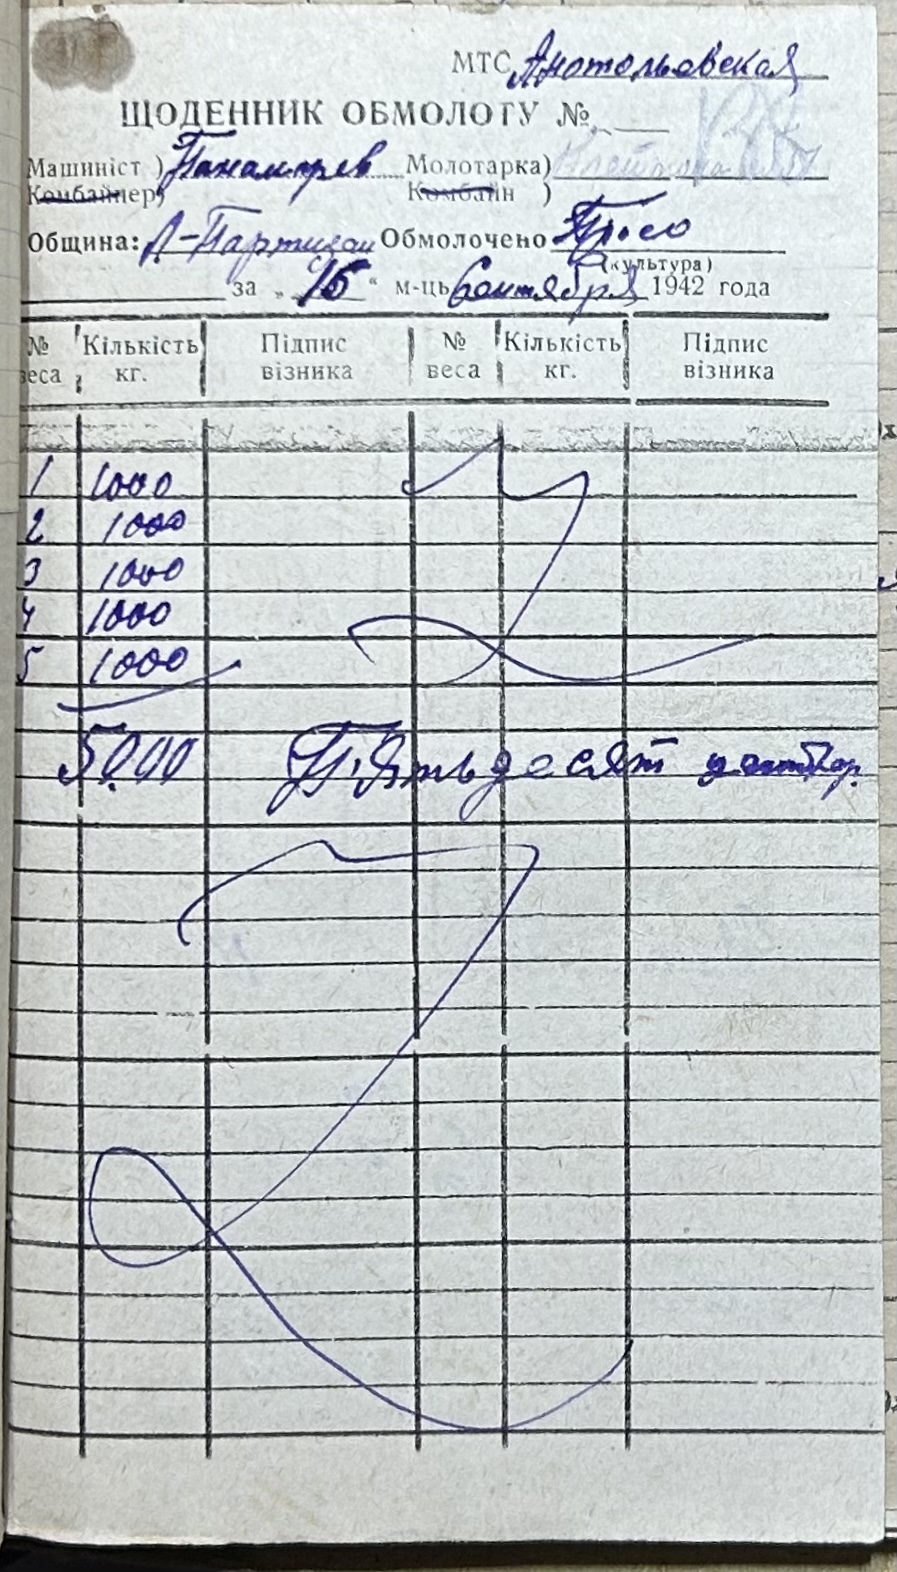 МТС Анотольевская
ЩОДЕННИК ОБМОЛОТУ №
Машиніст ) Молотарка)
Комбайнер) Комбайн )
Община: Л-Партизан Обмолочено Просо
(культура)
за „ 15 “ м-ць Сентября 1942 года
№ Кількість Підпис № Кількість Підпис
веса кг. візника веса кг. візника
1 1000
2 1000
3 1000
4 1000
5 1000
5000 Пятьдесят центнер.